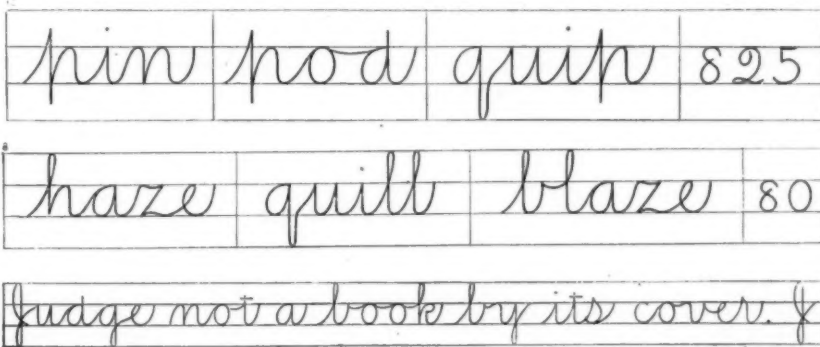 pin pod quip 825
haze quill blaze 80
Judge not a book by its cover. J